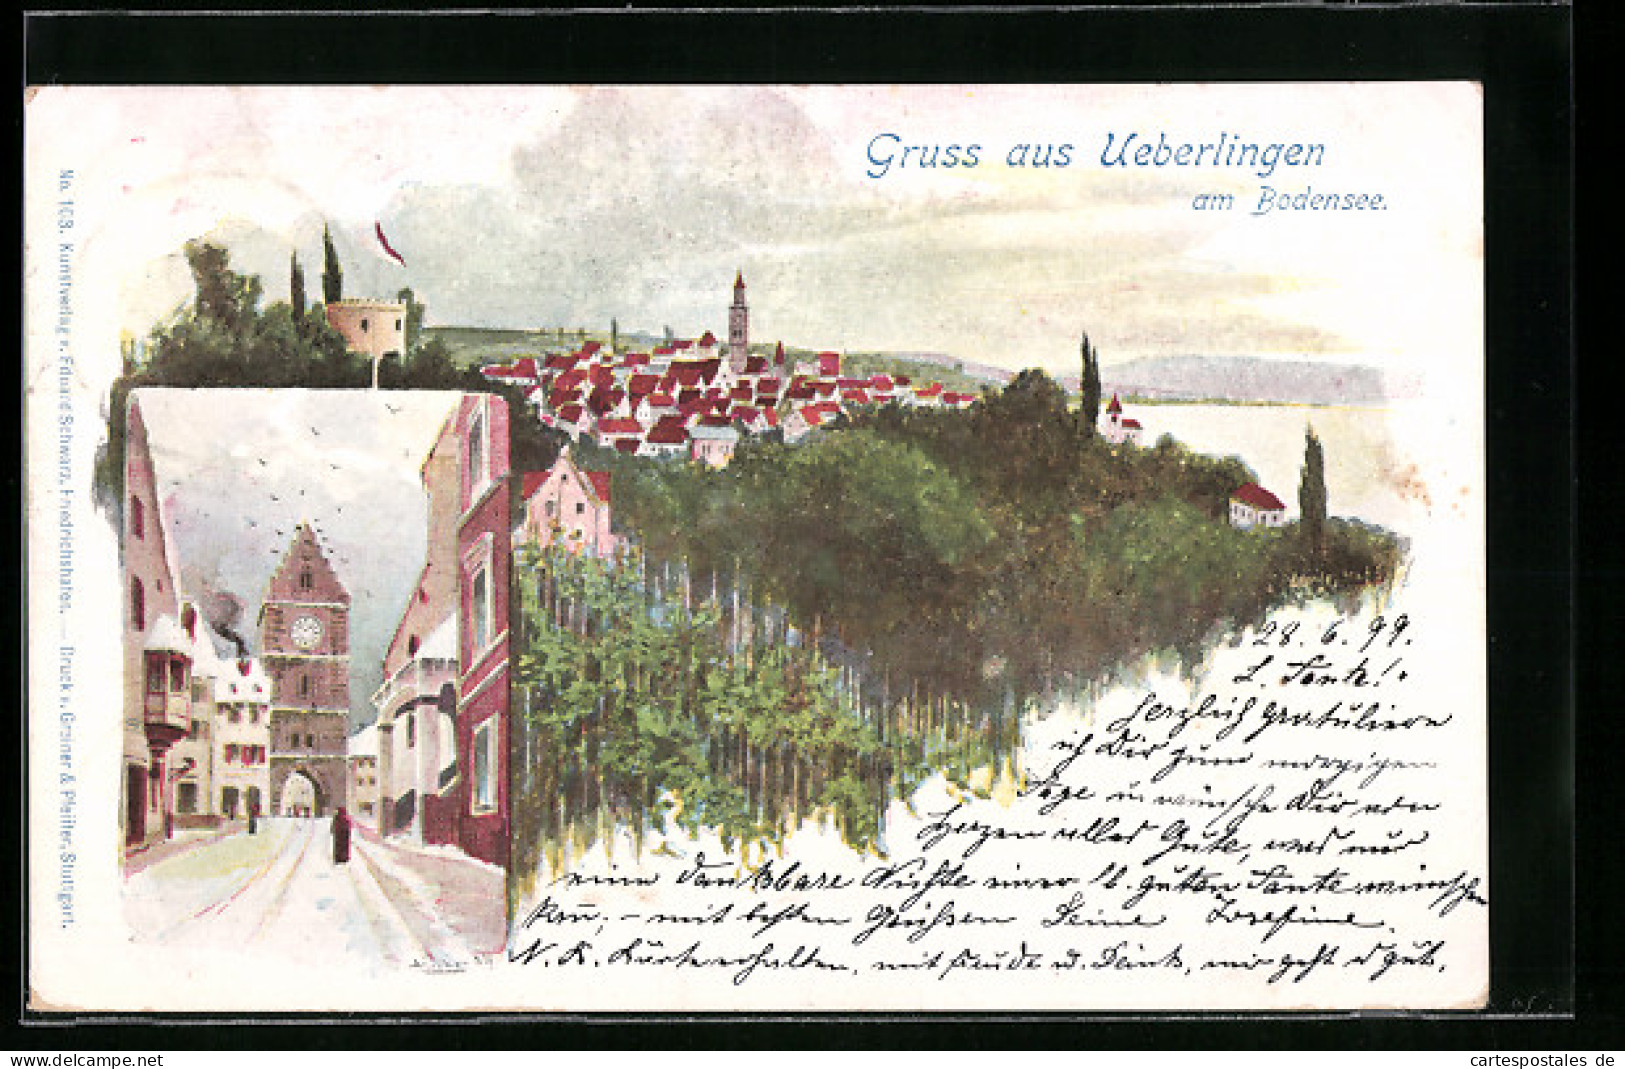 Gruss aus Ueberlingen
am Bodensee.
No. 108. Kunstverlag v. Eduard Schwarz, Friedrichshafen. — Druck v. Greiner & Pfeiffer, Stuttgart.
28. 6. 99.
L. Tante!
Herzlich gratuliere
ich Dir zum morgigen
Tage u. wünsche Dir von
Herzen alles Gute, was nur
eine dankbare Nichte einer lb. guten Tante wünschen
kann; – mit besten Grüßen Deine Josefine.
N. K. Karte erhalten, mit Freude u. Dank, mir geht's gut.
cartespostales de
www.delcampe.net